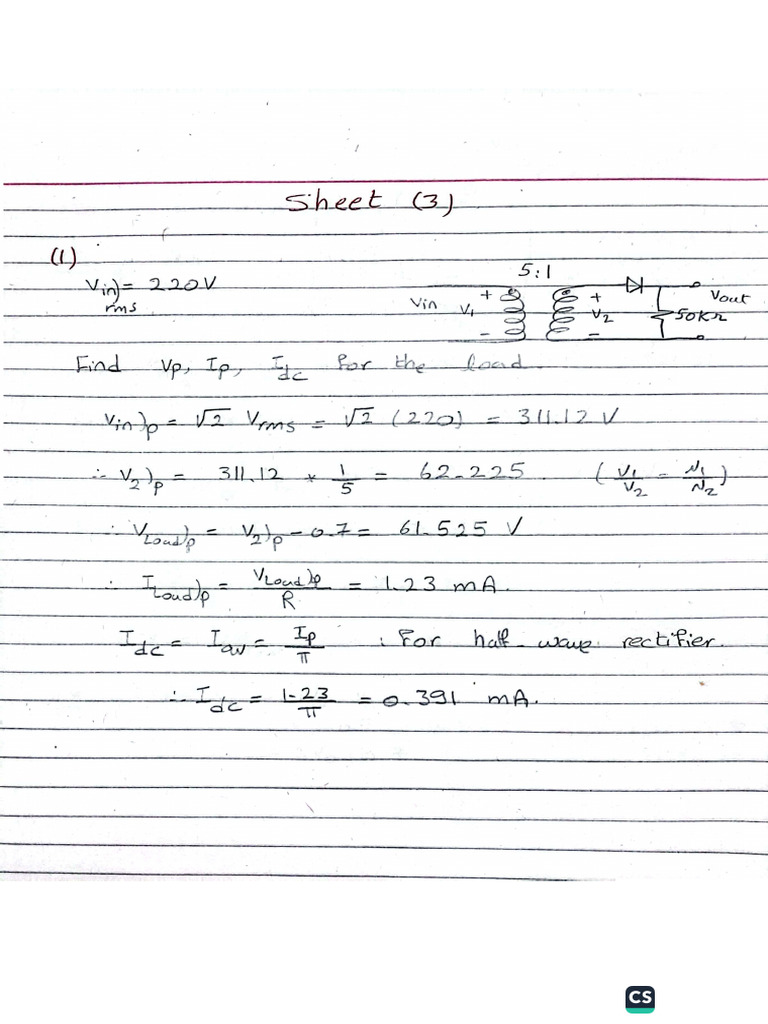 Sheet (3)
(1)
Vin)rms = 220V
5:1
Vin V1 + - + V2 - 50KΩ Vout
Find Vp, Ip, Idc for the load.
Vin)p = √2 Vrms = √2 (220) = 311.12 V
∴ V2)p = 311.12 * 1/5 = 62.225 (V1/V2 = N1/N2)
∴ VLoad)p = V2)p - 0.7 = 61.525 V
∴ ILoad)p = VLoad)p/R = 1.23 mA.
Idc = Iav = Ip/π : for half-wave rectifier.
∴ Idc = 1.23/π = 0.391 mA.
CS